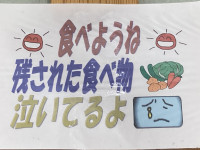 食べようね
残された食べ物
泣いてるよ